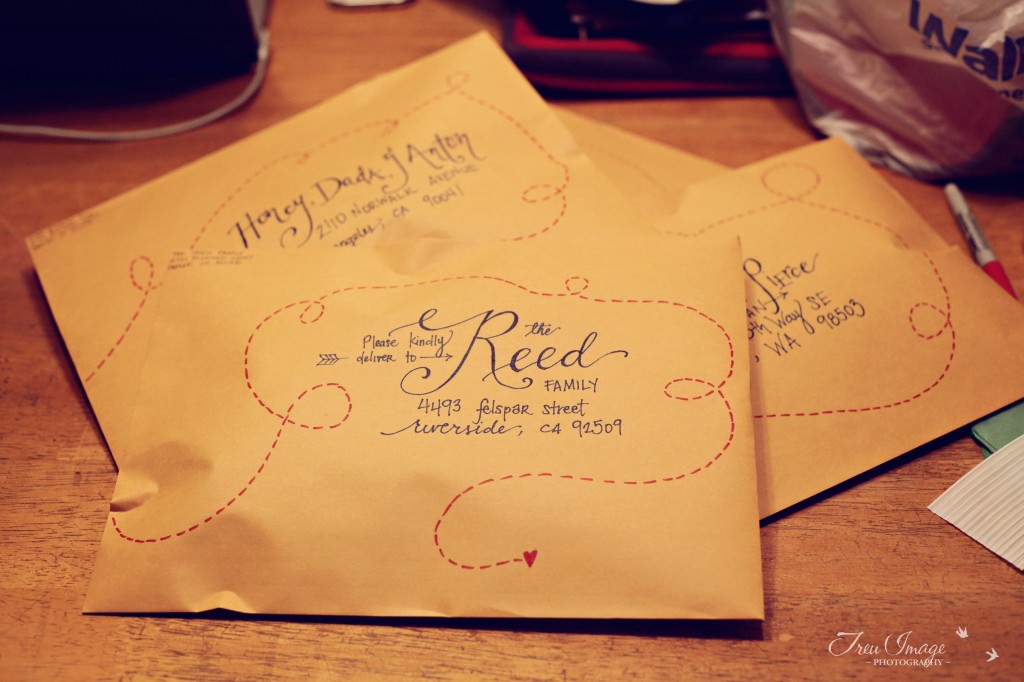 Honey, Dada, & Anton
2110 NORWALK AVENUE
CA 90041
Please kindly
deliver to
the
Reed
FAMILY
4493 felspar street
riverside, CA 92509
Pierce
Way SE
WA 98503
Wal
Treu Image
- PHOTOGRAPHY -